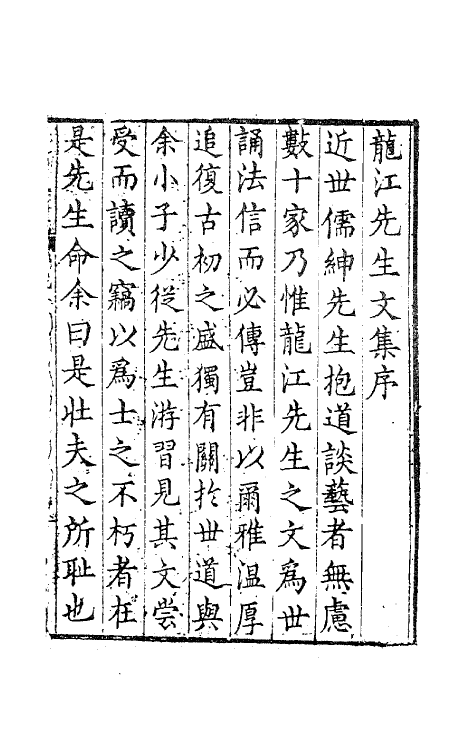 龍江先生文集序
近世儒紳先生抱道談藝者無慮
數十家乃惟龍江先生之文爲世
誦法信而必傳豈非以爾雅温厚
追復古初之盛獨有關於世道與
余小子少從先生游習見其文嘗
受而讀之竊以爲士之不朽者在
是先生命余曰是壯夫之所耻也